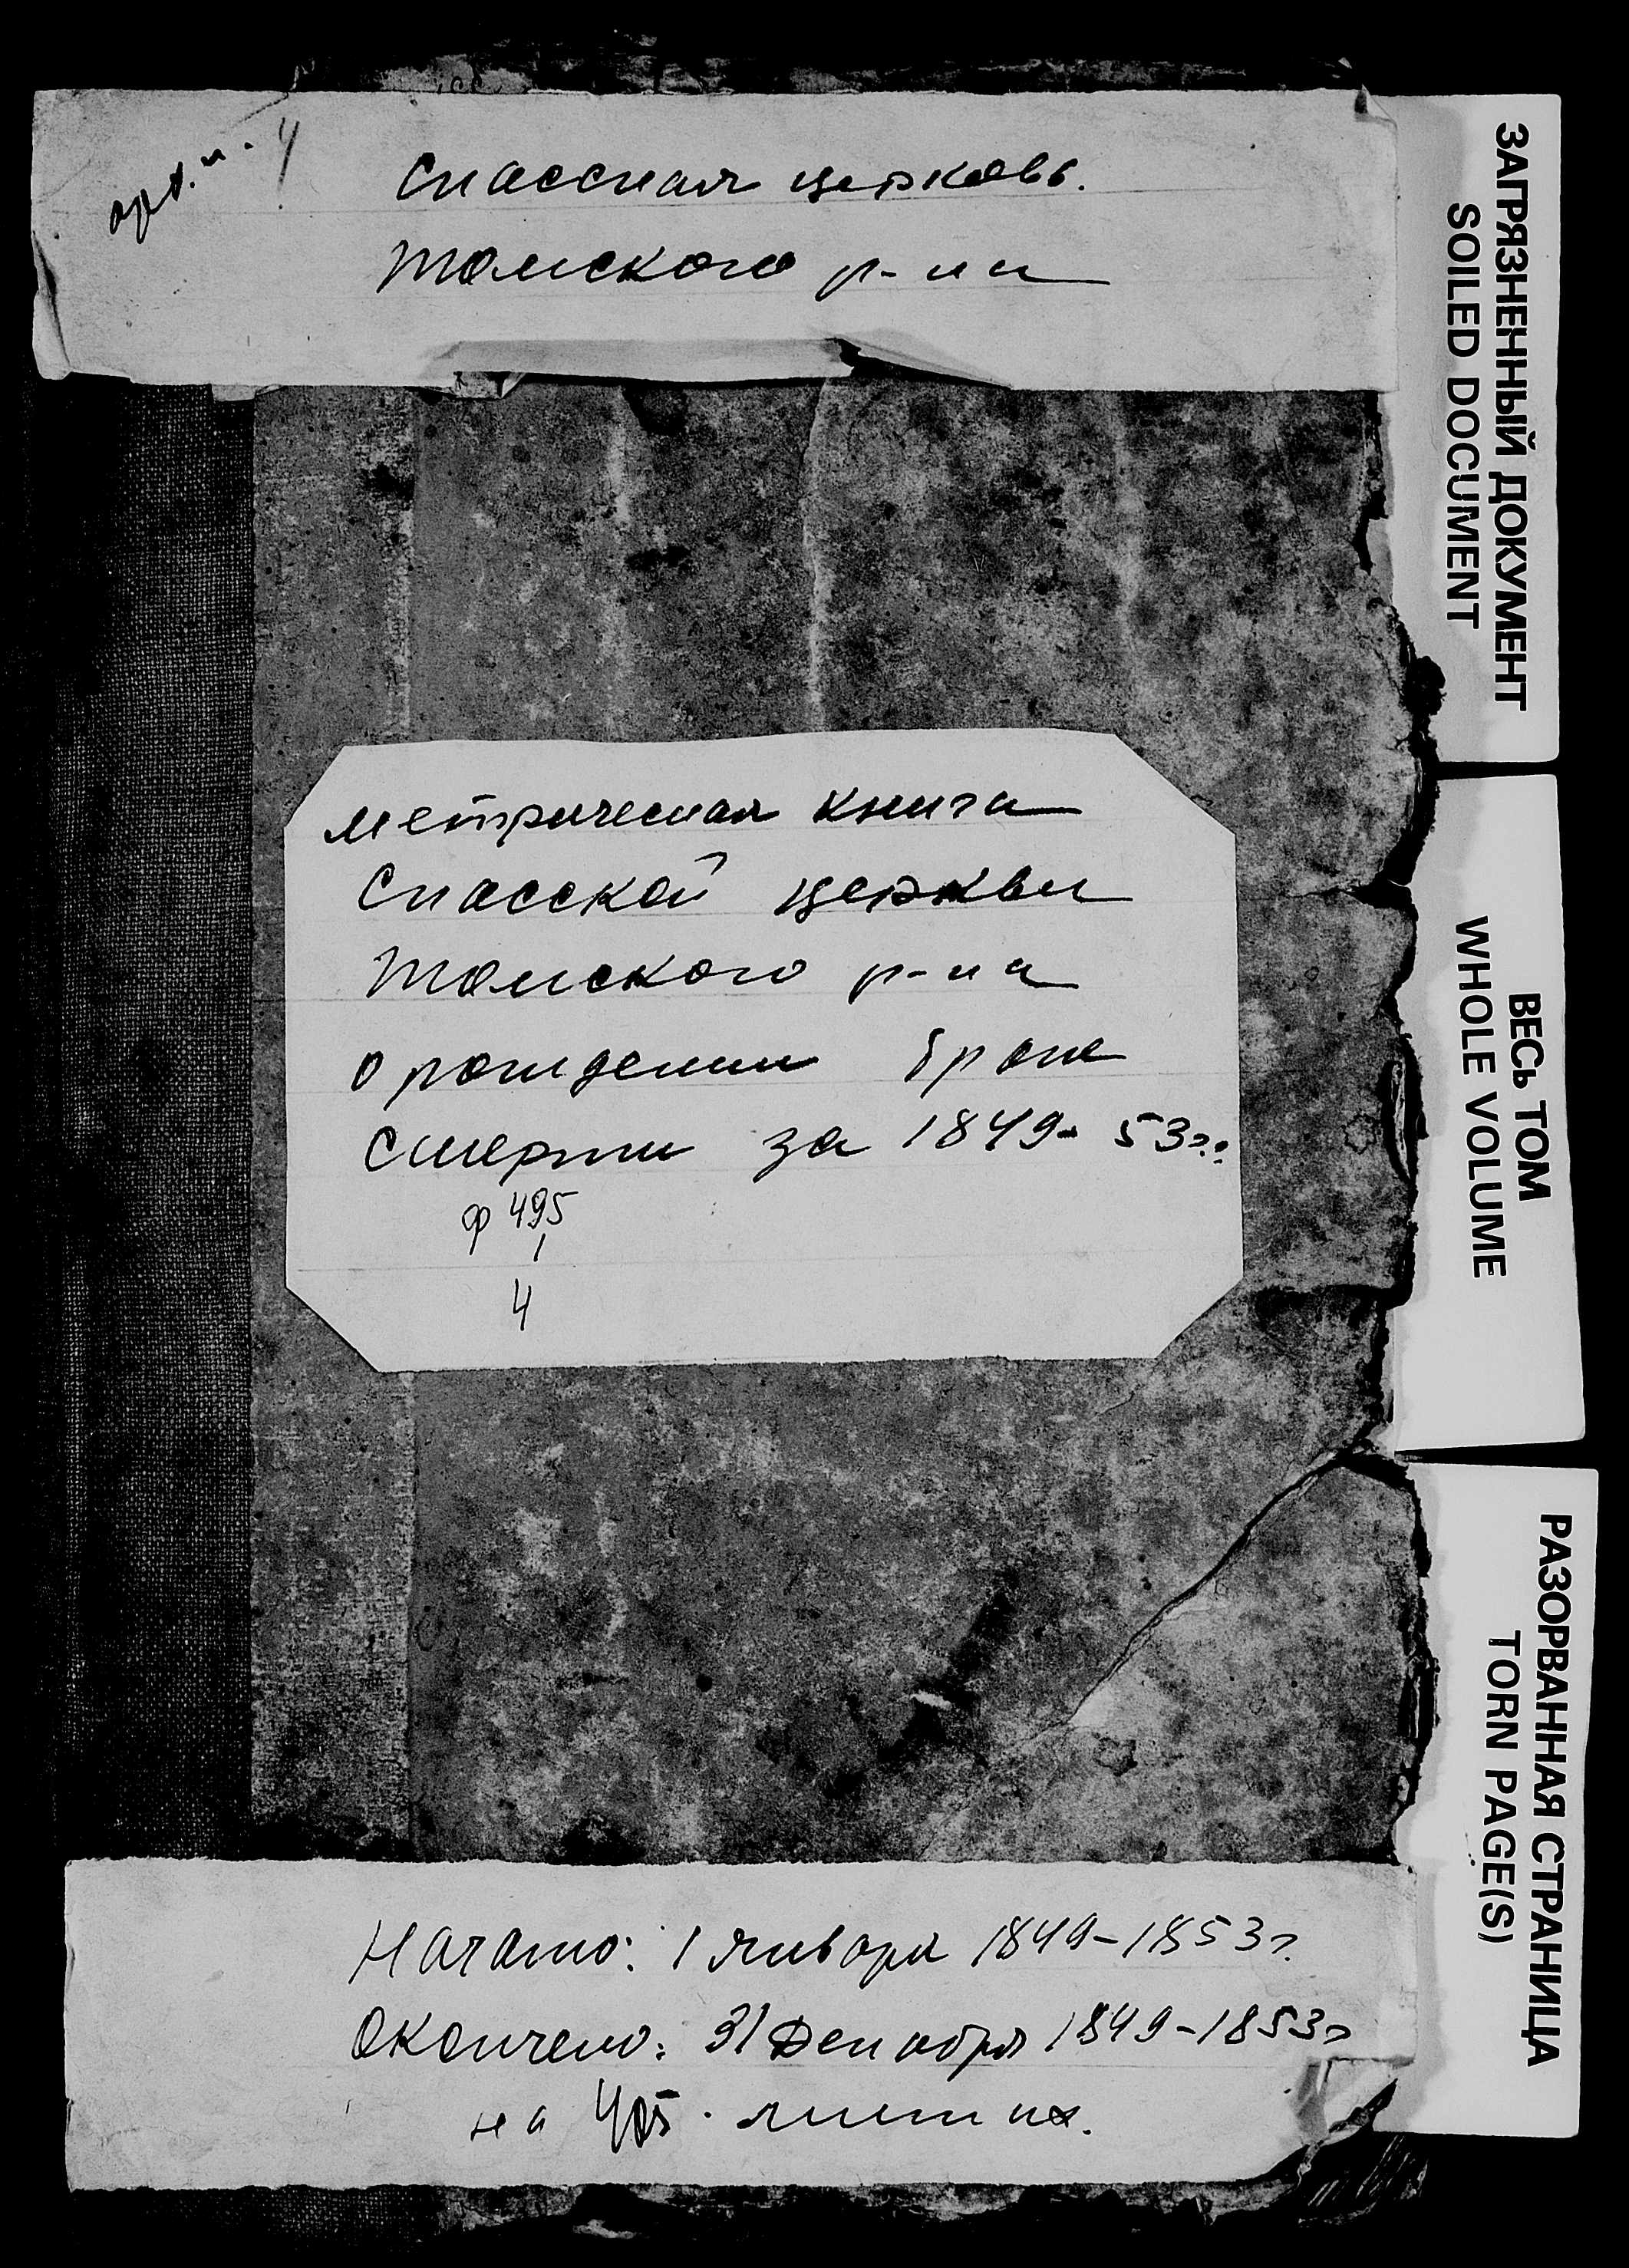 арх. н. 4
Спасская церковь.
Томского р-на
Метрическая книга
Спасской церкви
Томского р-на
о рождении браке
смерти за 1849-53гг.
ф 495
1
4
Начато: 1 января 1849-1853г.
Окончено: 31 Декабря 1849-1853г
на листах.
ЗАГРЯЗНЕННЫЙ ДОКУМЕНТ
SOILED DOCUMENT
ВЕСЬ ТОМ
WHOLE VOLUME
РАЗОРВАННАЯ СТРАНИЦА
TORN PAGE(S)